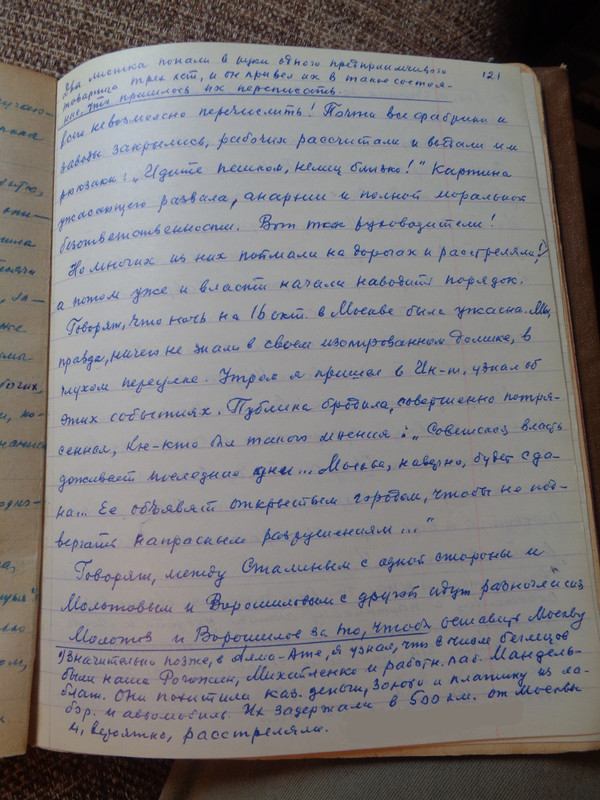 Два листка попали в руки одного предприимчивого 121
товарища трех лет, и он привел их в такое состоя-
ние, что пришлось их переписать.
всего невозможно перечислить! Почти все фабрики и
заводы закрылись, рабочих рассчитали и выдали им
рюкзаки: „Идите пешком, немец близко!" Картина
ужасающего развала, анархии и полной моральной
безответственности. Вот так руководители!
Но многих из них поймали на дорогах и расстреляли,¹⁾
а потом уже и власти начали наводить порядок.
Говорят, что ночь на 16 окт. в Москве была ужасна. Мы,
правда, ничего не знали в своем изолированном домике, в
глухом переулке. Утром я пришел в Ин-т, узнал об
этих событиях. Публика бродила, совершенно потря-
сенная, кое-кто был такого мнения: „Советская власть
доживает последние дни... Москва, наверно, будет сда-
на... Ее объявят открытым городом, чтобы не под-
вергать напрасным разрушениям..."
Говорят, между Сталиным с одной стороны и
Молотовым и Ворошиловым с другой идут разногласия
Молотов и Ворошилов за то, чтобы оставить Москву
¹⁾Значительно позже, в Алма-Ате, я узнал, что в числе беглецов
были наши Рогожин, Михайленко и работн. лаб. Мандель-
блат. Они похитили каз. деньги, золото и платину из ла-
бор. и автомобиль. Их задержали в 500 км. от Москвы
и, вероятно, расстреляли.